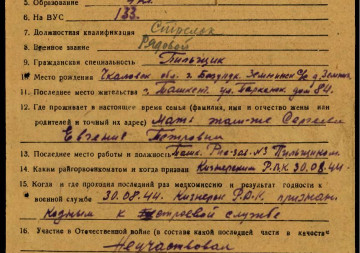 5. Образование 4 кл.
6. На ВУС 133.
7. Должностная квалификация Стрелок
8. Военное звание Рядовой
9. Гражданская специальность Пильщик
10. Место рождения Чкаловск. обл. г. Бузулук
11. Последнее место жительства г. Ташкент. ул. дом 84.
12. Где проживает в настоящее время семья (фамилия, имя и отчество жены или
родителей и точный их адрес) мать там-же
Евгения Петровна
13. Последнее место работы и должность Пильщиком
14. Каким райгорвоенкоматом и когда призван Кизнерским Р.В.К. 30.08.44.
15. Когда и где проходил последний раз медкомиссию и результат годности к
военной службе 30.08.44. Кизнерск. Р.В.К. признан
годным к строевой службе
16. Участие в Отечественной войне (в составе какой последней части в качестве
Не участвовал